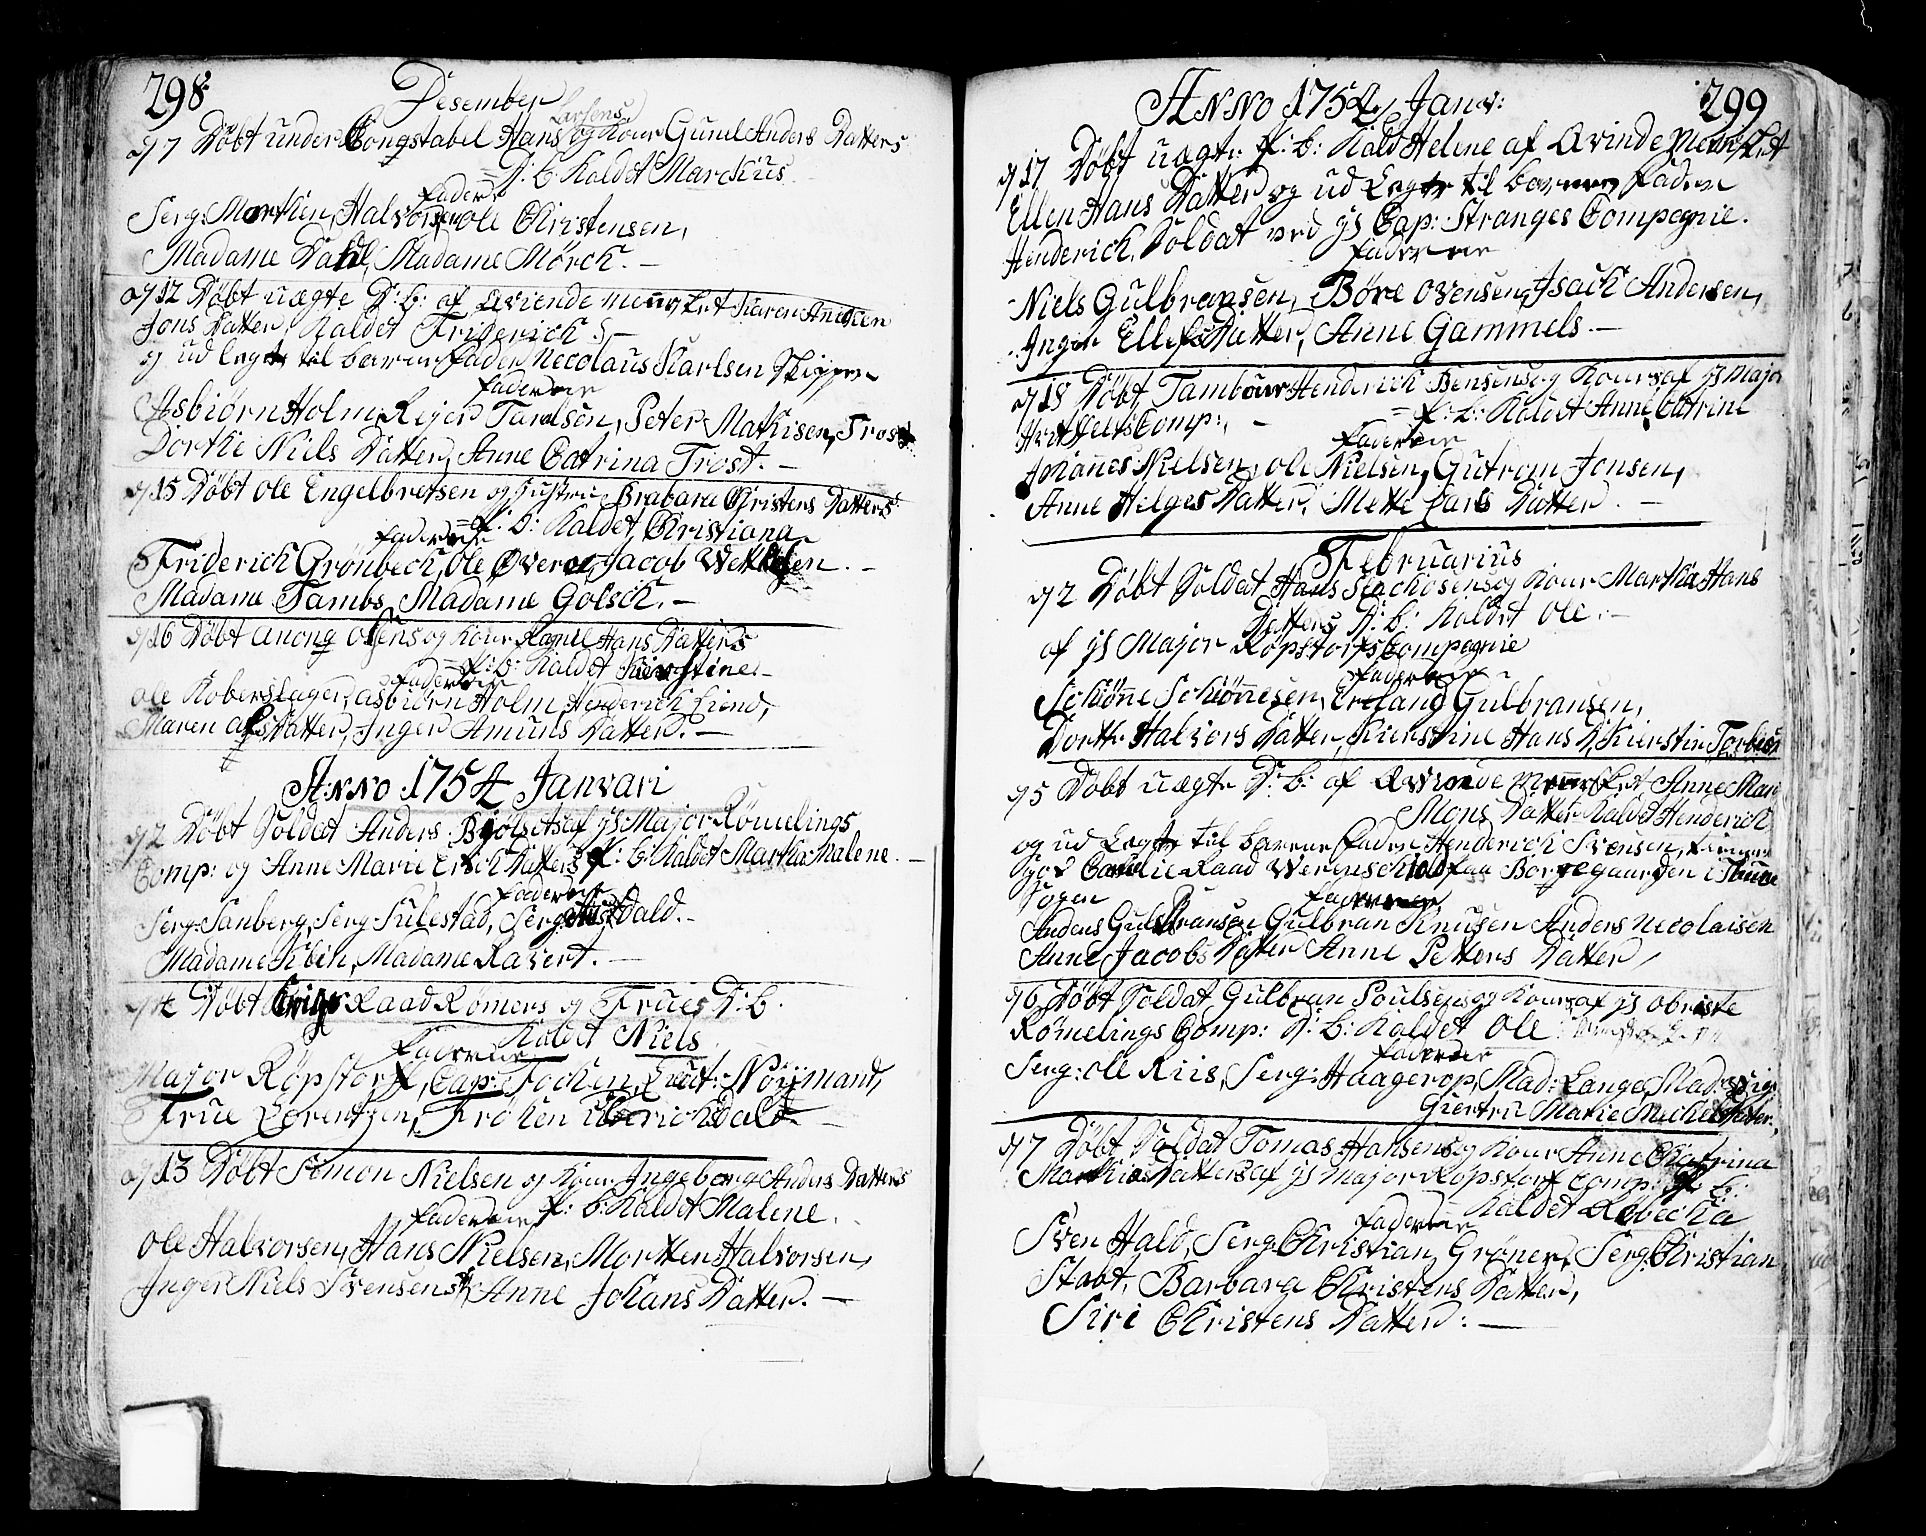 298
Desember
Larsens
d 7 Döbt under Congstabel Hans og Kone Gunel Anders Datters
D: b. Kaldet Marckus
Faderne
Serg: Marthin Halvorsen, ole Christensen,
Madame Dahl, Madame Mörck. —
d 12 Döbt uægte D: b: af Qviende menscket Karen
Jons Datter, Kaldet Friderick. —
og ud lagt til barne fader Necolaus Karlsen Skipper
Faderne
Asbiörn Holm, Rejer, Peter Mathisen, Trost
Dorthe Niels Datter, Anne Catrina Trost. —
d 15 Döbt ole Engelbretsen og Hustru Brabara Christens Datters
P: b: Kaldet Christiana
Faderne
Friderick Grönbeck, ole, Jacob. —
Madame Tambs, Madame Golsch. —
d 16 Döbt olsens og Kone Hans Datters
P: b: Kaldet Kierstine. —
Faderne
ole Koberslager, asbiörn Holm, Henderick Liend,
Maren Datter, Inger Amuns Datter. —
Anno 1754 Janvari
d 2 Döbt Soldat Anders af Major Römelings
Comp: og Anne Marie Erick Datters P: b: Kaldet Martha Malene.
Faderne
Serg: Sanberg, Serg: Sulestad, Serg: Dald. —
Madame, Madame Ravert. —
d Döbt Krigs Raad Römers og Frues D: b.
Kaldet Niels
Faderne
Major Röpstorff, Cap: Focken, Nöjmand,
Frue Lorentzen, Fröken Dald. —
d 13 Döbt Simon Nielsen og Kone Ingeborg Anders Datters
P: b: Kaldet Malene.
Faderne
Ole Halvorsen, Hans Nielsen, Morthen Halvorsen,
Inger Niels Svensens, Anne Johans Datter. —
299
Anno 1754 Janv:
d 17 Döbt uægte P: b: Kald Helene af Qvinde Mensket
Ellen Hans Datter og ud Lagt til barne fader
Henderick, Soldat ved Cap: Stranges Compagnie.
Faderne
Niels Gulbransen, Böre ovensen, Isack Andersen,
Inger Ellefs Datter, Anne Gammels. —
d 18 Döbt Tambour Henderick Bensens og Kone af Major
P: b: Kaldet Anne Catrine
Comp:, —
Faderne
Johanes Nielsen, ole Nielsen, Gutrom Jonsen,
Anne Helges Datter, Mette Lars Datter. —
Februarius
d 2 Döbt Soldat Hans og Kone Martha Hans
Datters D: b: Kaldet Ole. —
af Major Röpstorfs Compagnie
Faderne
Schiönne Schiönnesen, Erland Gulbransen,
Dorthe Halvors Datter, Kierstine Hans D, Kierstin
d 5 Döbt uægte D: b: af Qvinde Mensket Anne Mari
Mons Datter Kaldet Henderick
og ud Lagt til barne fader Henderick Svensen,
hos Cancelie Raad Werenschiold paa Borregaarden i Thune
Sogen
Faderne
Anders Gulbransen Gulbran Knusen Anders Necolaisen
Anne Jacobs Datter Anne Petters Datter
d 6 Döbt Soldat Gulbran Poulsens og Kone af obriste
Römelings Comp: D: b: Kaldet Ole
Faderne
Serg: ole Riis, Serg: Haagerop, Mad: Lange, Mad:
Giertru Marie Michels
d 7 Döbt Soldat Tomas Hansens og Kone Anne Chatrina
Mathias Datters af Major Röpstorf Comp: P: b:
Kaldet Rebecka
Faderne
Sven Hald, Serg: Christian Gröner, Serg: Christian
Stabt, Barbara Christens Datter,
Siri Christens Datter: —